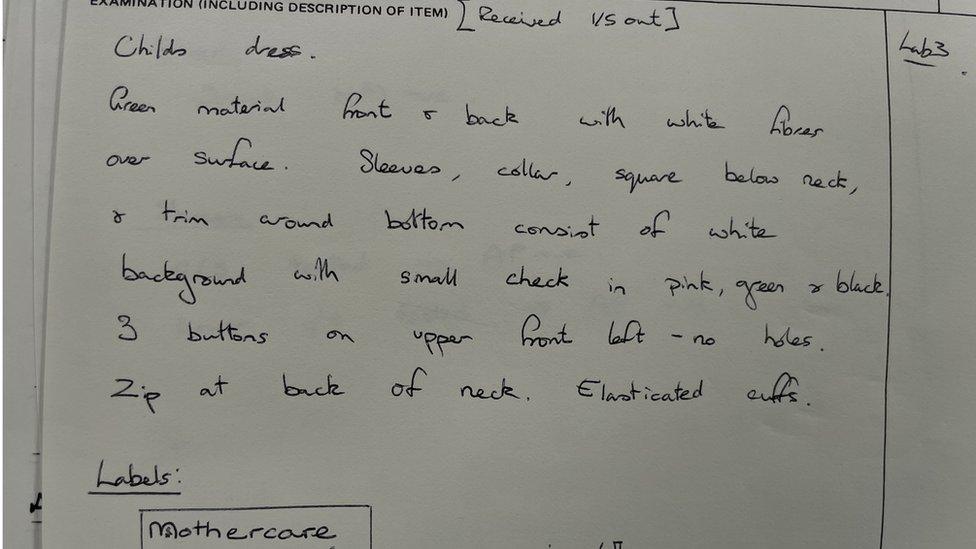 EXAMINATION (INCLUDING DESCRIPTION OF ITEM) [Received I/S out]
Lab3
Childs dress.
Green material front & back with white fibres
over surface. Sleeves, collar, square below neck,
& trim around bottom consist of white
background with small check in pink, green & black.
3 buttons on upper front left - no holes.
Zip at back of neck. Elasticated cuffs.
Labels:
Mothercare